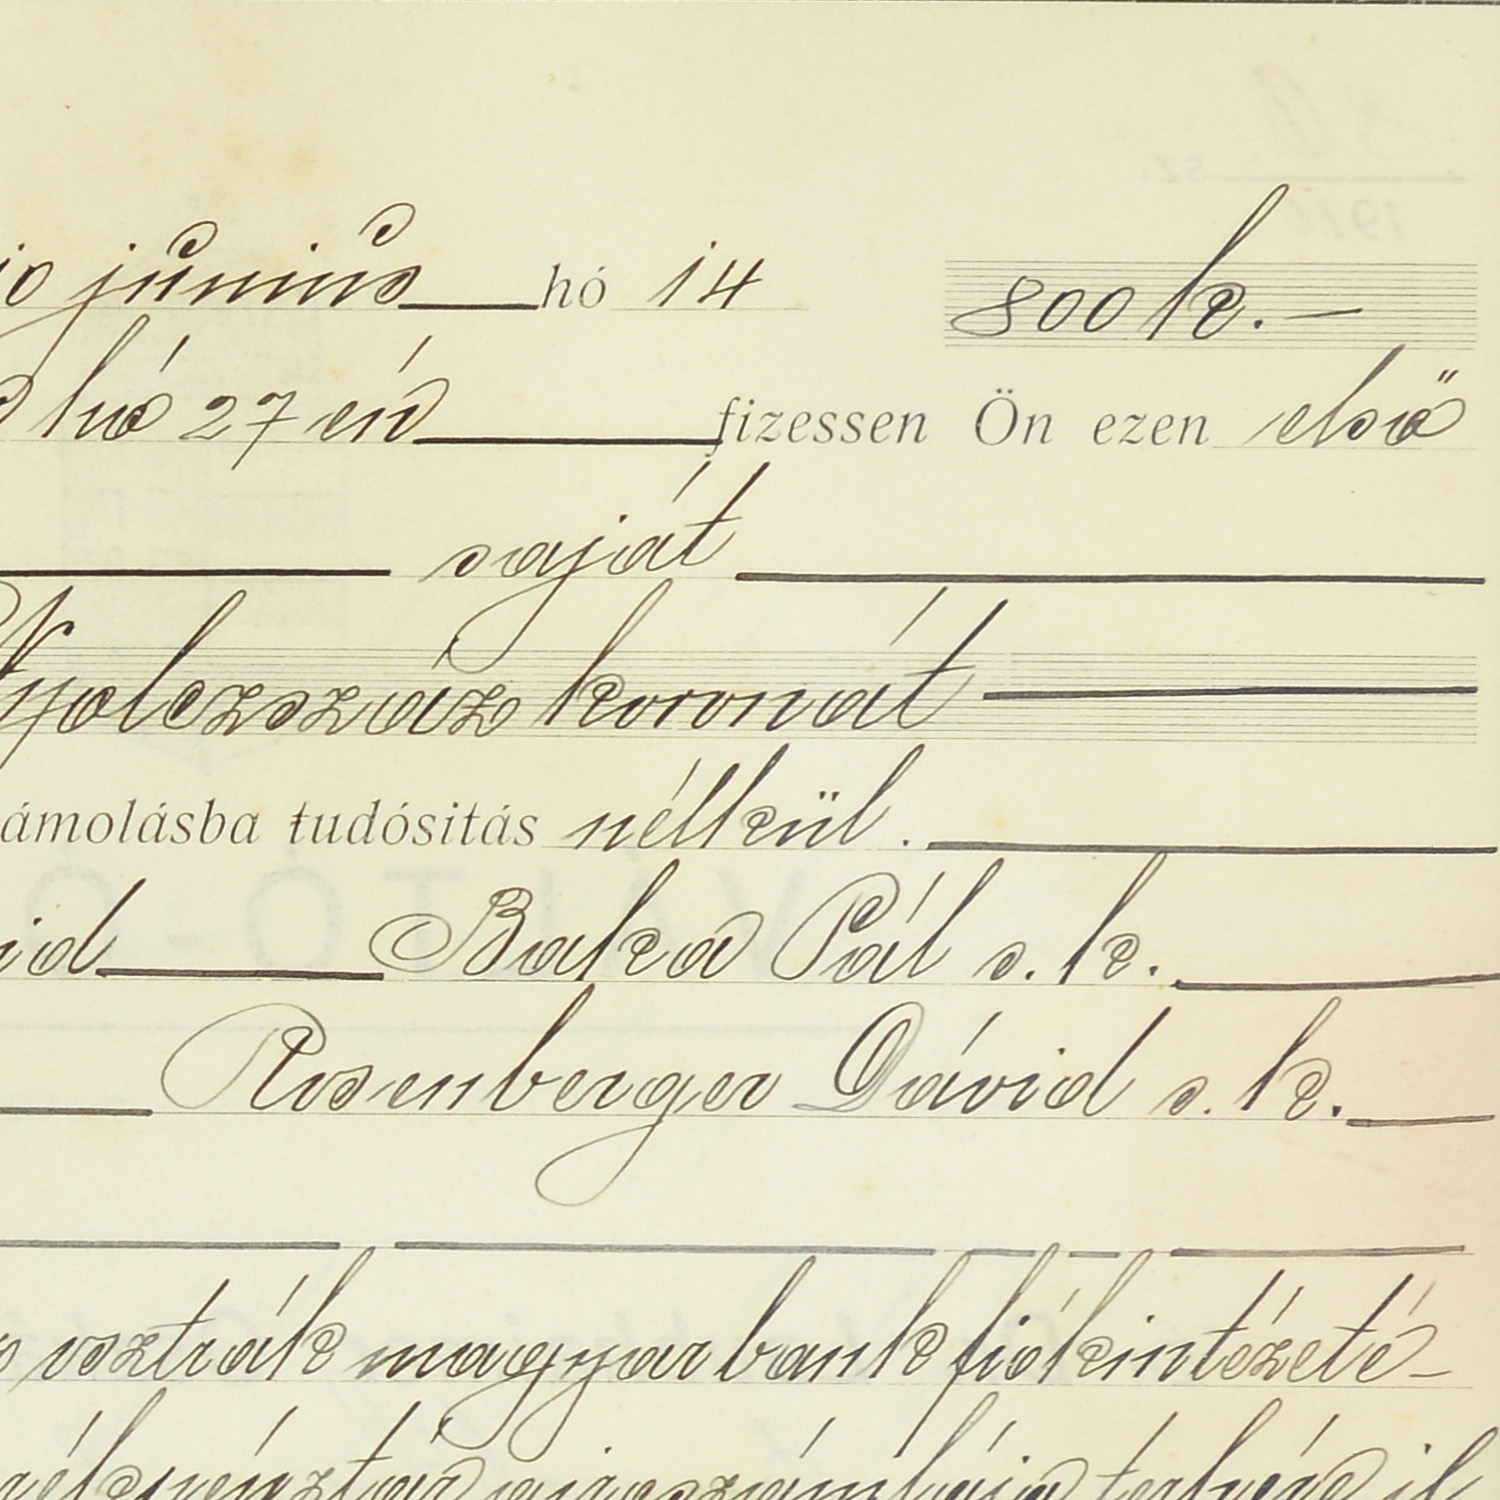 június hó 14 800 k.—
hó 27 én fizessen Ön ezen első
saját
Nyolczszáz koronát
ámolásba tudósitás nélkül.
id Baka Pál s. k.
Rosenberger Dávid s. k.
osztrák magyar bank fiókintézeté-